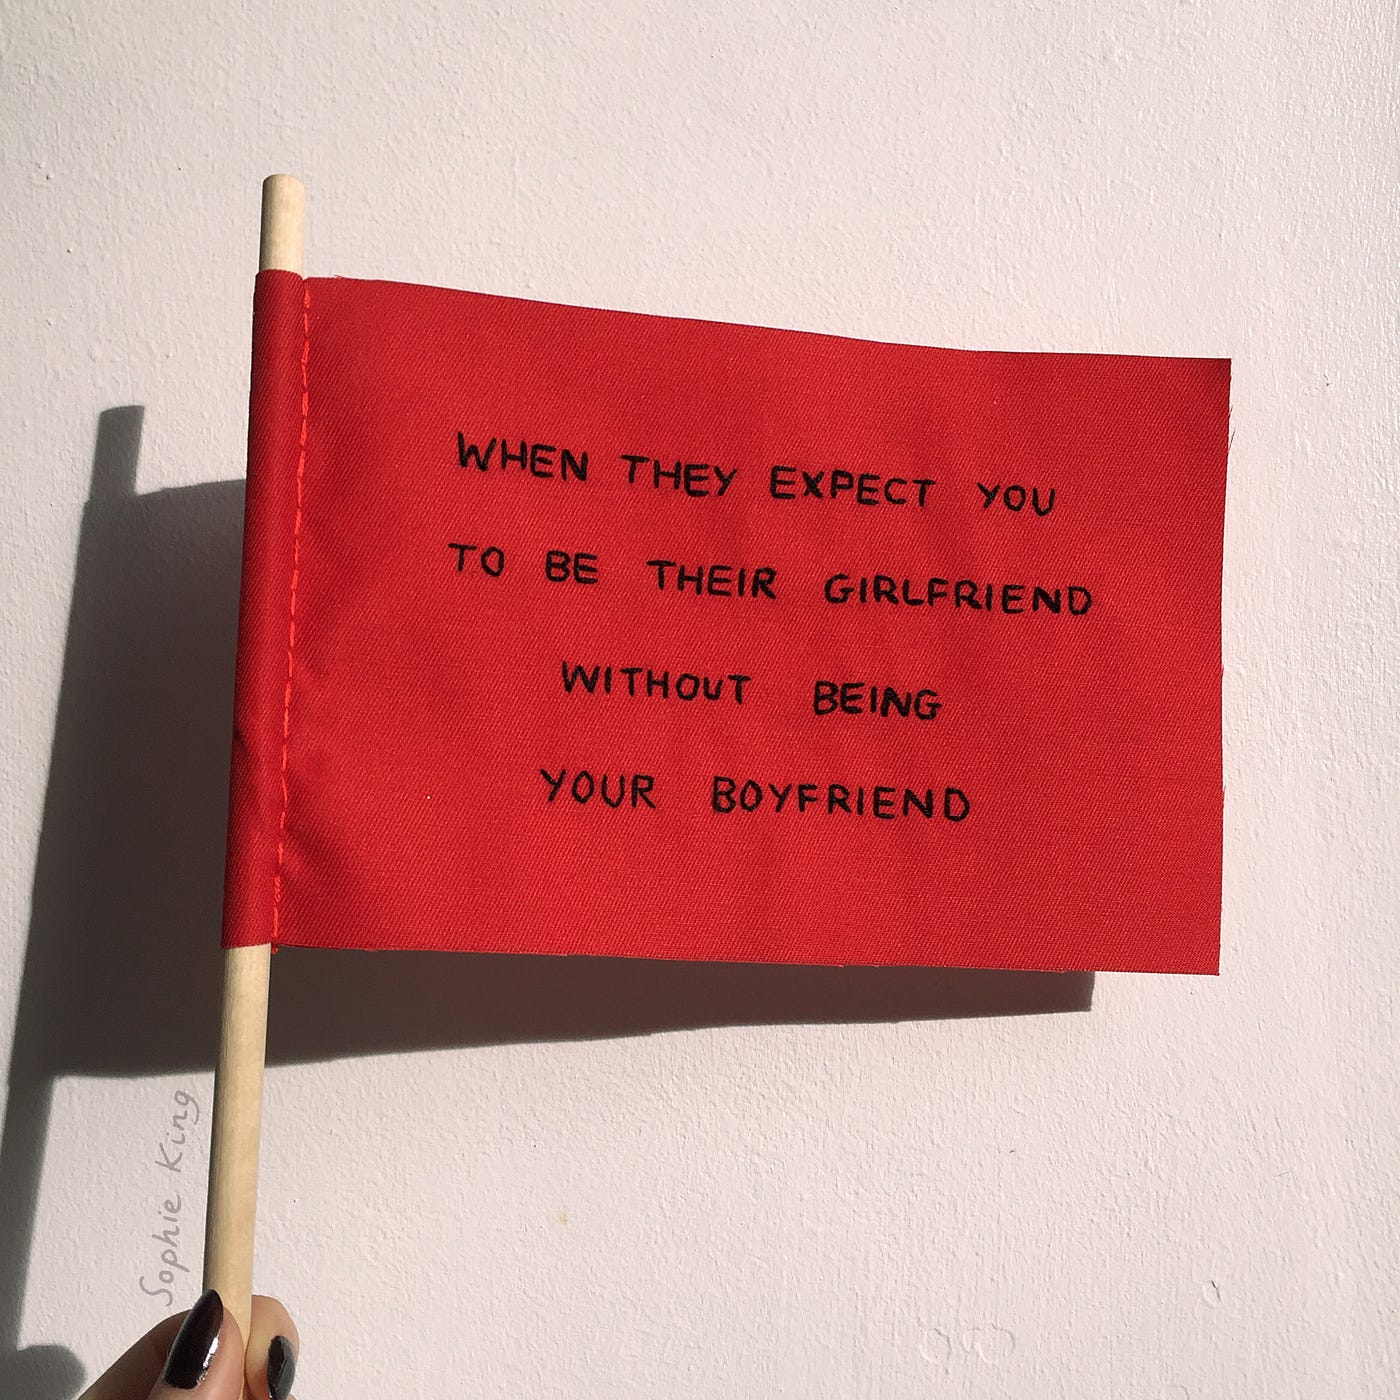 WHEN THEY EXPECT YOU
TO BE THEIR GIRLFRIEND
WITHOUT BEING
YOUR BOYFRIEND
Sophie King